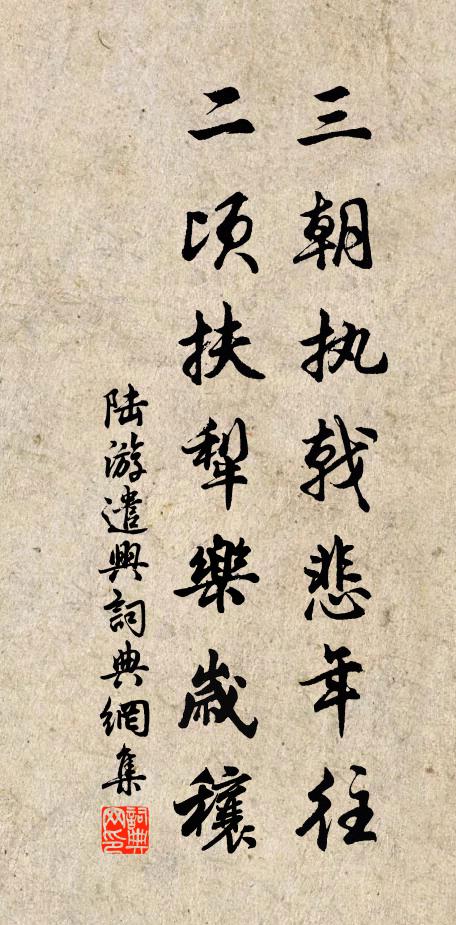 三朝执戟悲年往
二顷扶犁樂歳穰
陆游遣興詞典網集
詞典网印